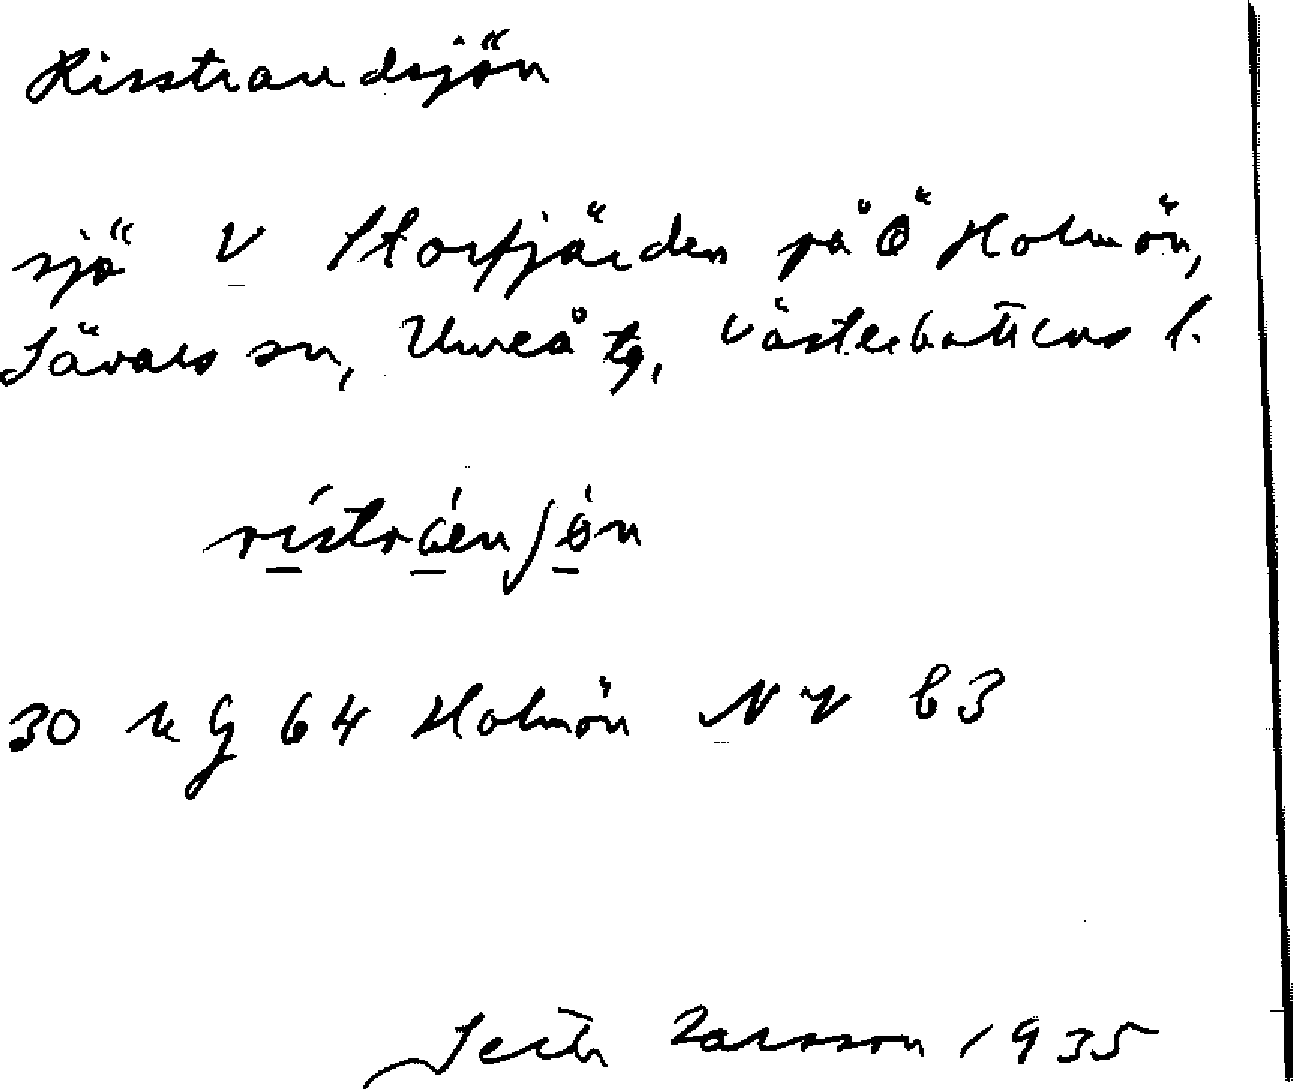 Risstrandsjön
sjö V Storfjärden på Ö Holmön,
Sävars sn, Umeå tg, Västerbottens l.
30 k G 64 Holmön NV b3
Seth Larsson 1935